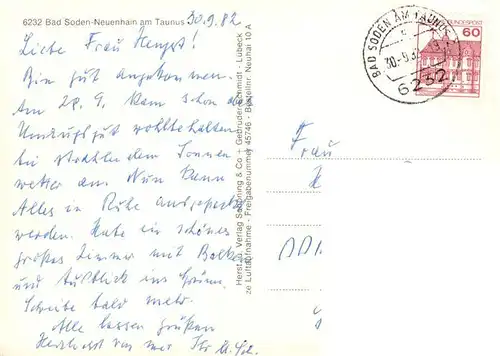 6232 Bad Soden-Neuenhain am Taunus
30.9.82
Liebe Frau
Bin gut angekommen.
Am 28.9. kam schon das
Umzugsgut wohlbehalten
bei strahlendem Sonnen
wetter an. Nun kann
Alles in Ruhe ausgepackt
werden. Habe ein schönes
großes Zimmer mit Balkon
und Ausblick ins Grüne.
Schreibe bald mehr.
Alle lassen grüßen
Herzlichst von
Herst. u. Verlag Schöning & Co + Gebrüder Schmidt - Lübeck
ze Luftaufnahme - Freigabenummer 45746 - Bestellnr. Neuhai 10 A
BAD SODEN AM TAUNUS
30.-9.82
6232
BUNDESPOST
60
Frau